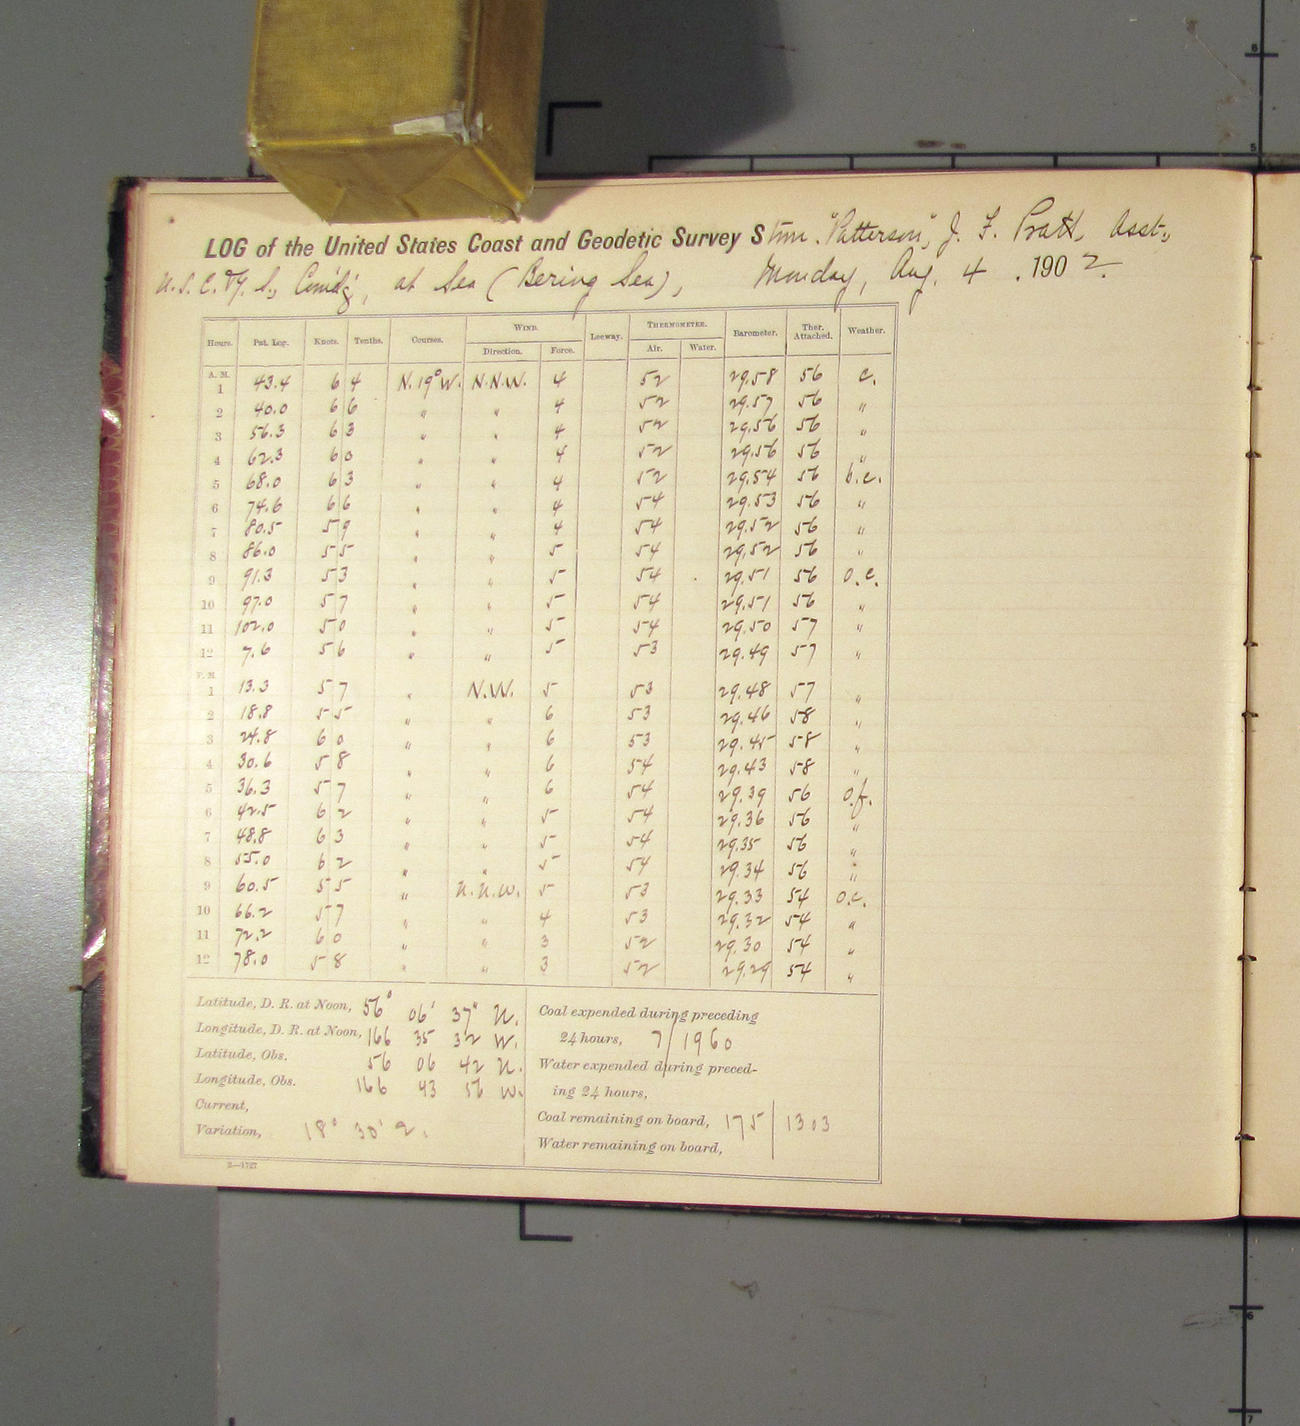 LOG of the United States Coast and Geodetic Survey Stmr. "Patterson", J. F. Pratt, Asst.,
U.S.C.&G.S., Comd'g, at Sea (Bering Sea), Monday, Aug. 4, 1902.
Hours. Pat. Log. Knots. Tenths. Courses. WIND. Leeway. THERMOMETER. Barometer. Ther. Attached. Weather.
Direction. Force. Air. Water.
A. M.
1 43.4 6 4 N.19°W. N.N.W. 4 52 29.58 56 c.
2 40.0 6 6 " " 4 52 29.57 56 "
3 56.3 6 3 " " 4 52 29.56 56 "
4 62.3 6 0 " " 4 52 29.56 56 "
5 68.0 6 3 " " 4 52 29.54 56 b.c.
6 74.6 6 6 " " 4 54 29.53 56 "
7 80.5 5 9 " " 4 54 29.52 56 "
8 86.0 5 5 " " 5 54 29.52 56 "
9 91.3 5 3 " " 5 54 29.51 56 o.c.
10 97.0 5 7 " " 5 54 29.51 56 "
11 102.0 5 0 " " 5 54 29.50 57 "
12 7.6 5 6 " " 5 53 29.49 57 "
P. M.
1 13.3 5 7 " N.W. 5 53 29.48 57 "
2 18.8 5 5 " " 6 53 29.46 58 "
3 24.8 6 0 " " 6 53 29.45 58 "
4 30.6 5 8 " " 6 54 29.43 58 "
5 36.3 5 7 " " 6 54 29.39 56 o.f.
6 42.5 6 2 " " 5 54 29.36 56 "
7 48.8 6 3 " " 5 54 29.35 56 "
8 55.0 6 2 " " 5 54 29.34 56 "
9 60.5 5 5 " N.N.W. 5 53 29.33 54 o.c.
10 66.2 5 7 " 4 53 29.32 54 "
11 72.2 6 0 " " 3 52 29.30 54 "
12 78.0 5 8 " " 3 52 29.29 54 "
Latitude, D. R. at Noon, 56° 06' 37" N.
Longitude, D. R. at Noon, 166 35 32 W.
Latitude, Obs. 56 06 42 N.
Longitude, Obs. 166 43 56 W.
Current,
Variation, 18° 30'
2—1727
Coal expended during preceding
24 hours, 7/1960
Water expended during preced-
ing 24 hours,
Coal remaining on board, 175 | 1303
Water remaining on board,
6
5
6
7